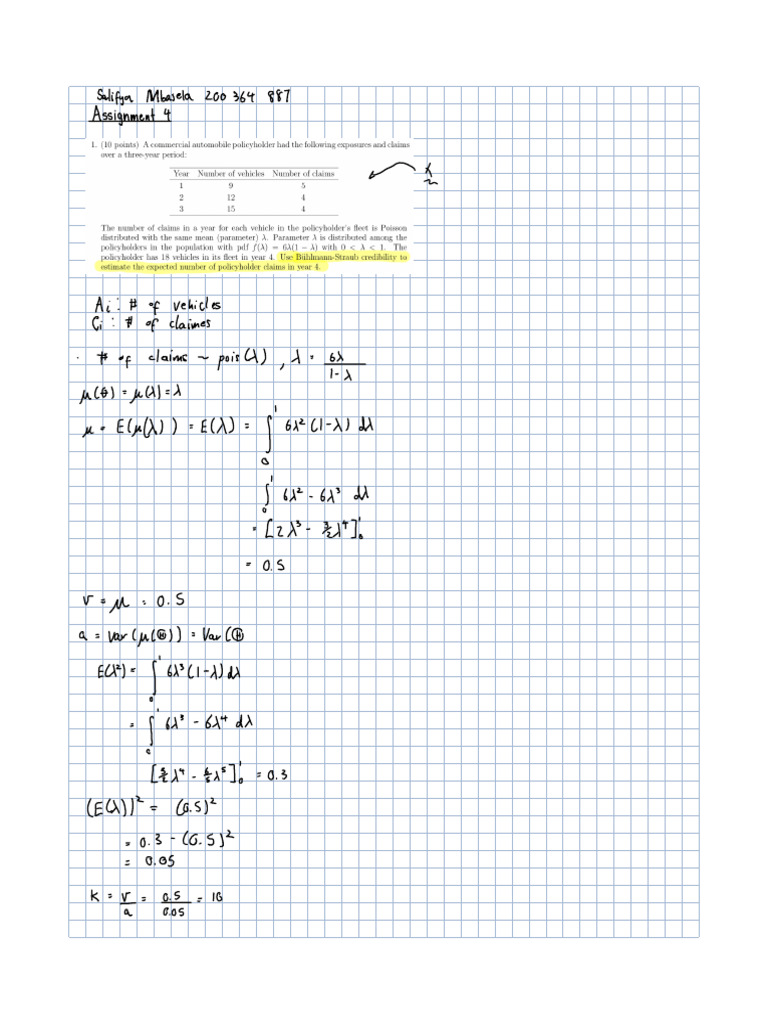 Salifya Mbasela 200 364 887
Assignment 4
1. (10 points) A commercial automobile policyholder had the following exposures and claims
over a three-year period:
Year Number of vehicles Number of claims
1 9 5
2 12 4
3 15 4
The number of claims in a year for each vehicle in the policyholder's fleet is Poisson
distributed with the same mean (parameter) λ. Parameter λ is distributed among the
policyholders in the population with pdf f(λ) = 6λ(1 − λ) with 0 < λ < 1. The
policyholder has 18 vehicles in its fleet in year 4. Use Bühlmann-Straub credibility to
estimate the expected number of policyholder claims in year 4.
Ai : # of vehicles
Ci : # of claimes
· # of claims ~ pois(λ), λ = 6λ/(1-λ)
μ(θ) = μ(λ) = λ
μ = E(μ(λ)) = E(λ) = ∫₀¹ 6λ² (1-λ) dλ
∫₀¹ 6λ² - 6λ³ dλ
= [2λ³ - 3/2 λ⁴]₀¹
= 0.5
v = μ = 0.5
a = Var(μ(Θ)) = Var(Θ
E(λ²) = ∫₀¹ 6λ³(1-λ)dλ
= ∫₀¹ 6λ³ - 6λ⁴ dλ
λ⁴ - 6/5 λ⁵]₀¹ = 0.3
(E(λ))² = (0.5)²
= 0.3 - (0.5)²
= 0.05
k = v/a = 0.5/0.05 = 10